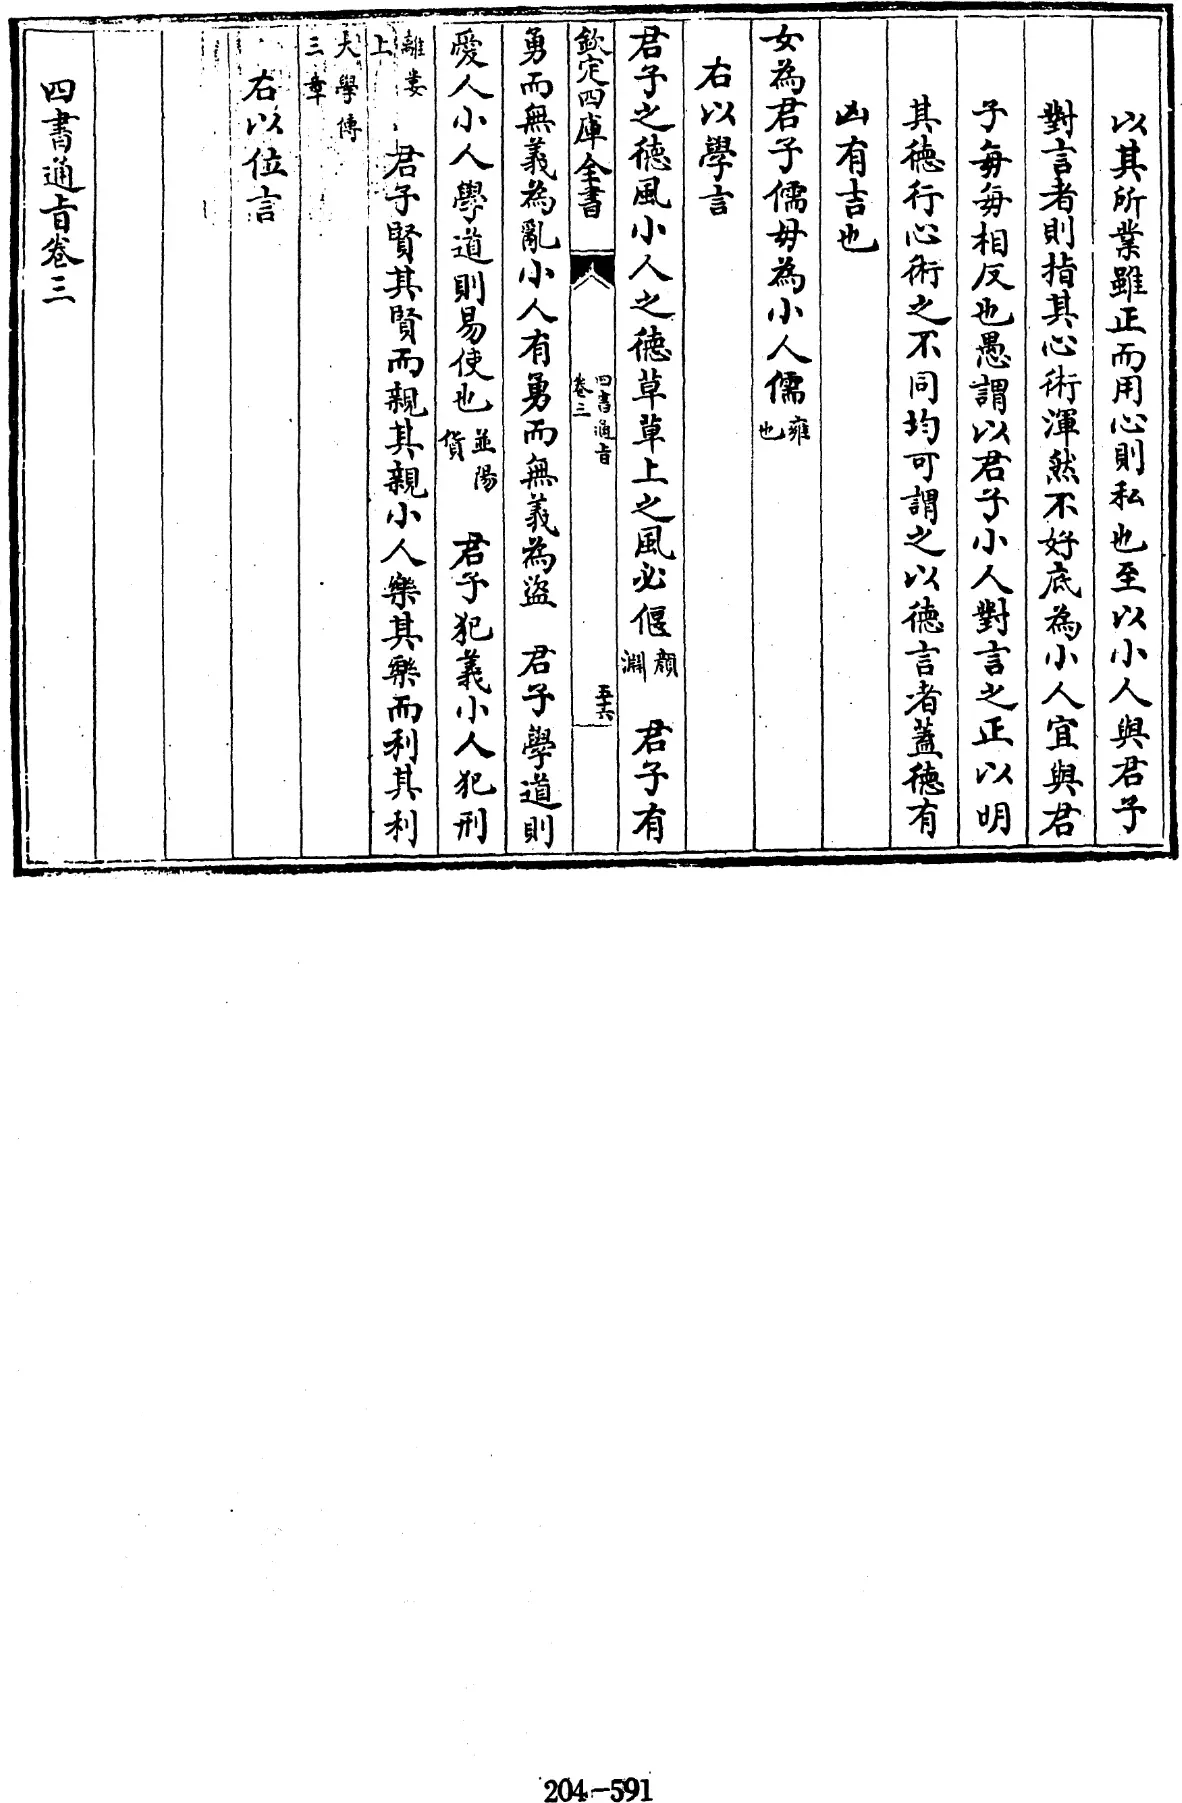 以其所業雖正而用心則私也至以小人與君子
對言者則指其心術渾然不好底為小人宜與君
子每每相反也愚謂以君子小人對言之正以明
其德行心術之不同均可謂之以德言者蓋德有
凶有吉也
女為君子儒毋為小人儒雍也
右以學言
君子之德風小人之德草草上之風必偃顏淵 君子有
欽定四庫全書 四書通旨卷三 五十六
勇而無義為亂小人有勇而無義為盜 君子學道則
愛人小人學道則易使也並陽貨 君子犯義小人犯刑
離婁上 君子賢其賢而親其親小人樂其樂而利其利
大學傳三章
右以位言
四書通旨卷三
204-591